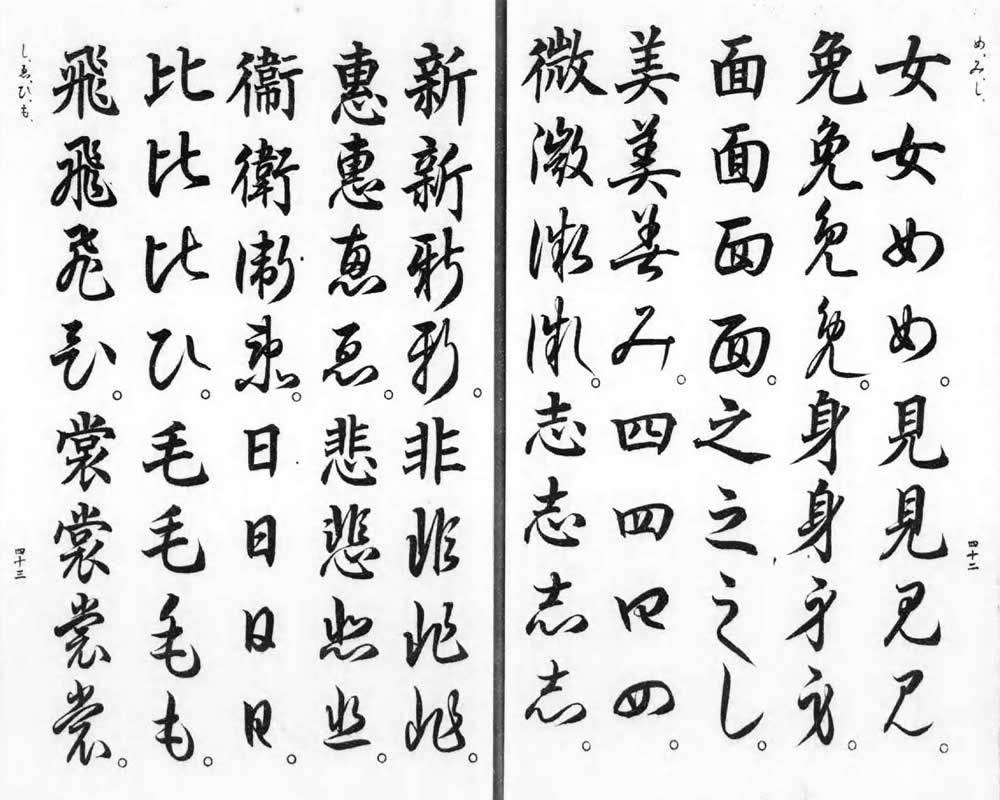 め、み、し、
四十二
女女めめ。見見見見。
免免免免。身身身身。
面面面面。之之之し。
美美美み。四四四四。
微微微微。志志志志。
新新新新。非非非非。
惠惠惠惠。悲悲悲悲。
衞衛衛衛。日日日日。
比比比ひ。毛毛毛も。
飛飛飛飛。裳裳裳裳。
し、ゑ、ひ、も、
四十三